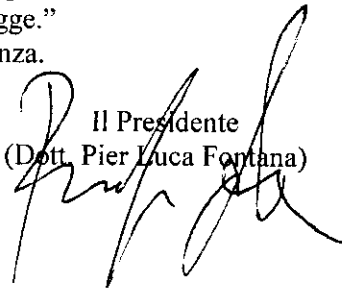 gge.”
nza.
Il Presidente
(Dott. Pier Luca Fontana)